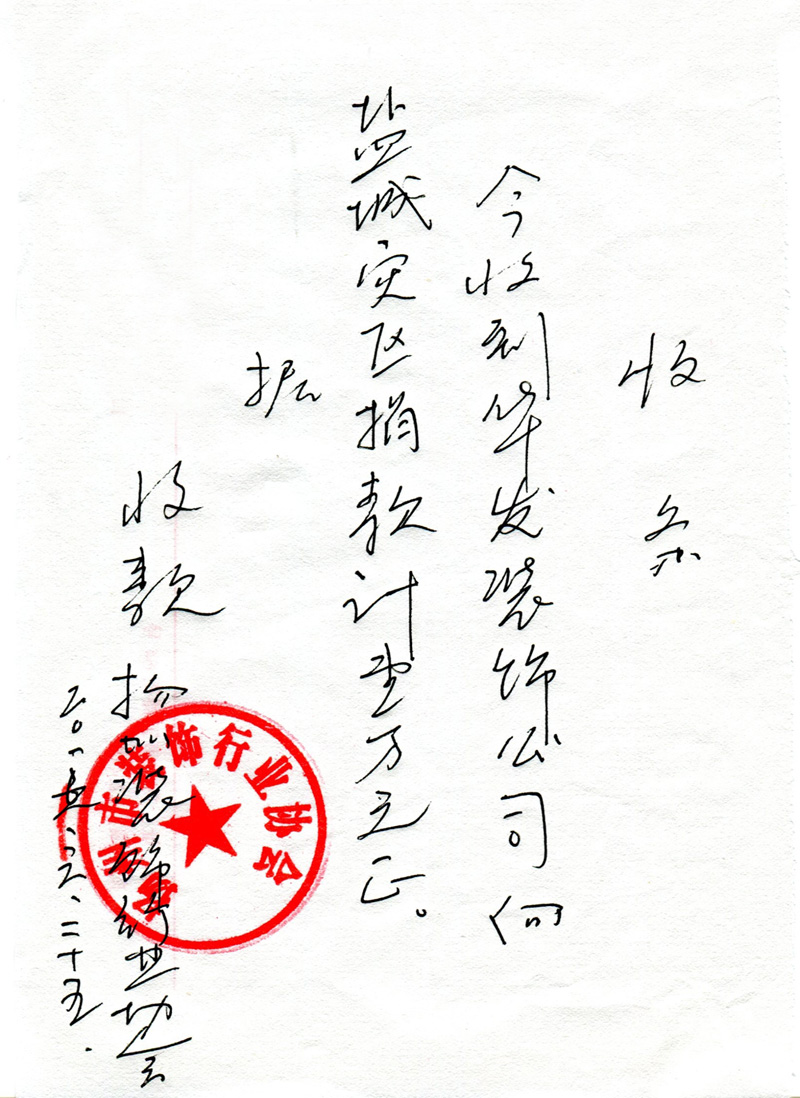 收条
今收到华发装饰公司向
盐城灾区捐款计壹万元正。
据
收款 扬州装饰行业协会
二0一五、六、二十五.
扬州市装饰行业协会